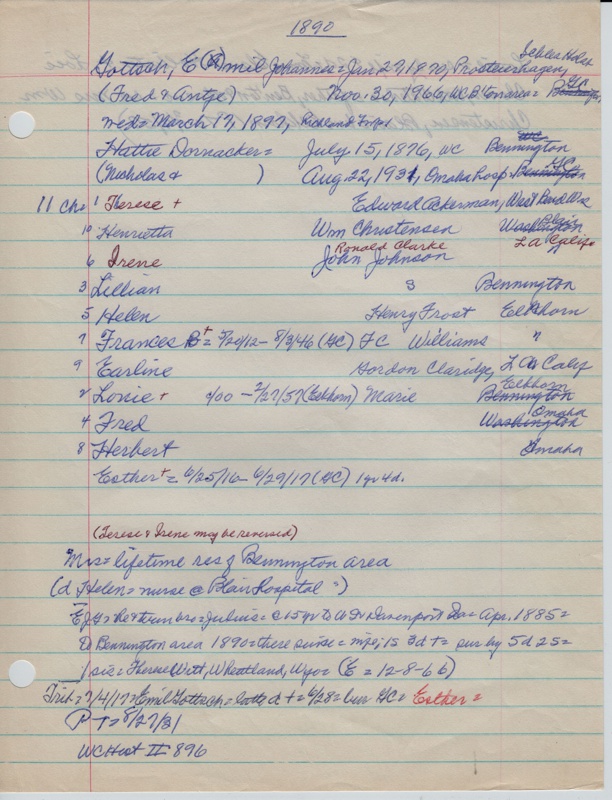 1890
Gottsch, E (X)mil Johannes = Jan 27, 1870, Probsteierhagen, Schles Holst
(Fred & Antje) Nov. 30, 1966, WC B'ton area = GC
Med = March 17, 1897, Richland Twp
Hattie Dornacker = July 15, 1876, WC Bennington
(Nicholas & ) Aug 22, 1931, Omaha hosp = Bennington GC
11 ch = 1 Therese + Edward Ackerman, West Bend Wis
10 Henrietta Wm Christensen Washington Blair
6 Irene John Johnson Ronald Clarke LA Calif
3 Lillian 3 Bennington
5 Helen Henry Frost Elkhorn
7 Frances B+ = 3/20/12 - 8/3/46 (GC) FC Williams "
9 Earline Gordon Claridge, LA Calif
2 Louie + /00 - 2/27/57 (Elkhorn) Marie Bennington Elkhorn
4 Fred Washington Omaha
8 Herbert Omaha
Esther + = 6/25/16 - 6/29/17 (GC) 1 yr 4d.
(Terese & Irene may be reversed)
Mrs = lifetime res of Bennington area
(d Helen = nurse @ Blair Hospital ")
E yr = he & twin bro = Julius = @ 15 yr to US Davenport Ia = Apr. 1885 =
to Bennington area 1890 = there since = sur by 5d 2s =
1 sis = Therese Witt, Wheatland, Wyo = (E = 12-8-66)
Trib = 7/4/17 = Emil Gottsch = d + = 6/28 = bur GC = Esther =
P + = 8/27/31
WC Hist II 896